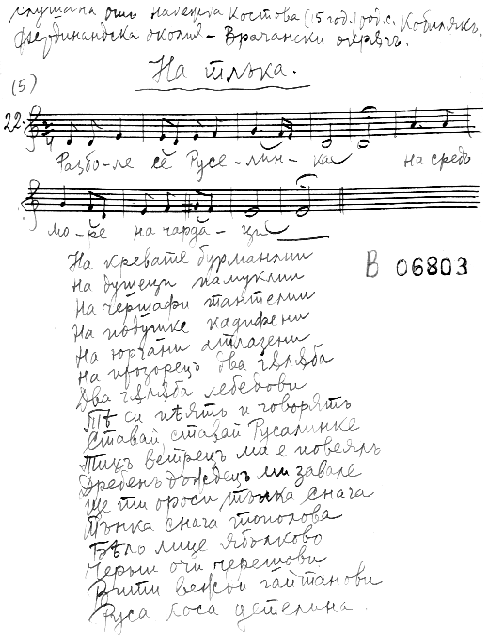 слушана отъ Надежда Костова (15 год.) род. с. Кобилякъ,
Фердинандска околия - Врачански окрѫгъ.
На тлъка.
(5)
22.
Разбо-ле се Русе-лин-ка на средъ
мо-ре на чарда-ци
На кревате бурманлии
На душеци памуклии
На чершафи тантелии
На повушке кадифени
На юргани атлазени
На прозорецъ два гѫлѫба
Два гѫлѫба лебедови
Тѣ ся пѣятъ и говорятъ
Ставай, ставай Русалинке
Тихъ ветрецъ ма е повеялъ
Дребенъ дождецъ ми завале
Ще ти ороси тънка снага
Тънка снага тополова
Бѣло лице ябълково
Черни очи черешови
Вити вежди гайтанови
Руса коса детелина.
B 06803